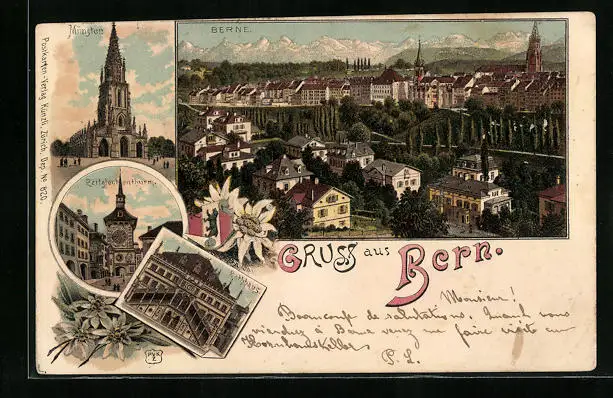 Münster
BERNE.
Postkarten-Verlag Künzli, Zürich, Dep. No 820.
Zeitglockenthurm.
Rathhaus
GRUSS aus Bern.
Monsieur!
Beaucoup de salutations. Quand vous
viendrez à Berne venez me faire visite au
Kornhauskeller
P. L.